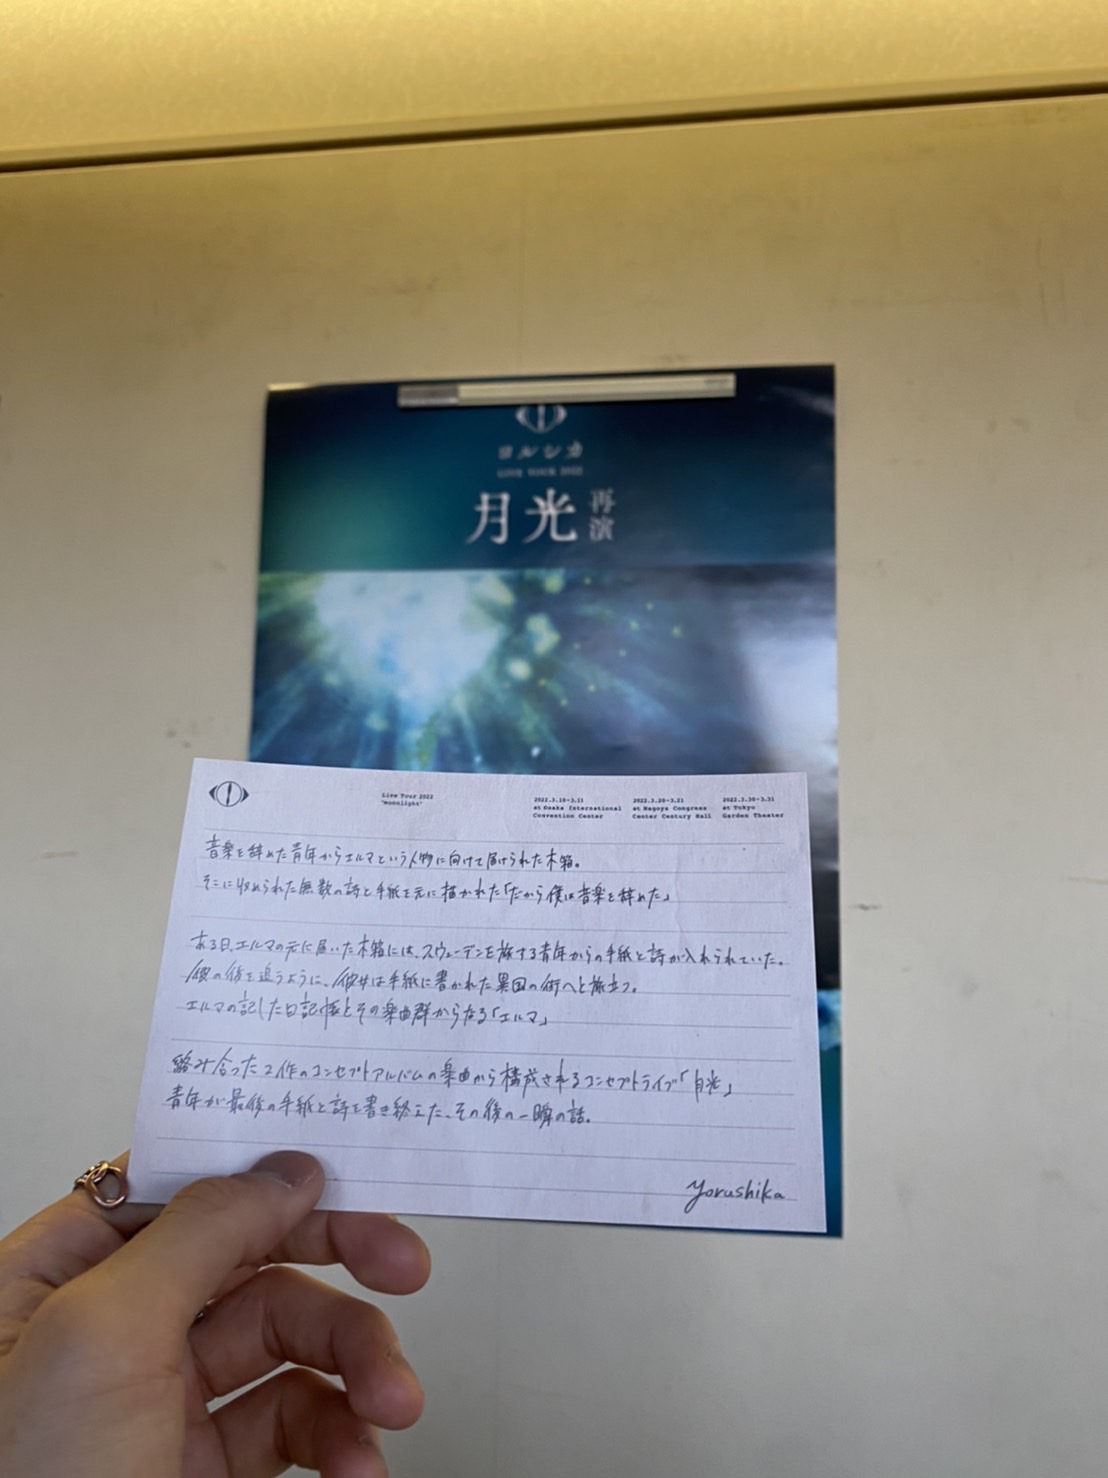 ヨルシカ
LIVE TOUR 2022
月光 再演
Live Tour 2022
"moonlight"
2022.3.10-3.11
at Osaka International
Convention Center
2022.3.20-3.21
at Nagoya Congress
Center Century Hall
2022.3.30-3.31
at Tokyo
Garden Theater
音楽を辞めた青年からエルマという人物に向けて届けられた木箱。
そこに収められた無数の詩と手紙を元に描かれた「だから僕は音楽を辞めた」
ある日、エルマの元に届いた木箱には、スウェーデンを旅する青年からの手紙と詩が入れられていた。
彼の後を追うように、彼女は手紙に書かれた異国の街へと旅立つ。
エルマの記した日記帳とその楽曲群からなる「エルマ」
絡み合った2作のコンセプトアルバムの楽曲から構成されるコンセプトライブ「月光」
青年が最後の手紙と詩を書き終えた、その後の一瞬の話。
Yorushika